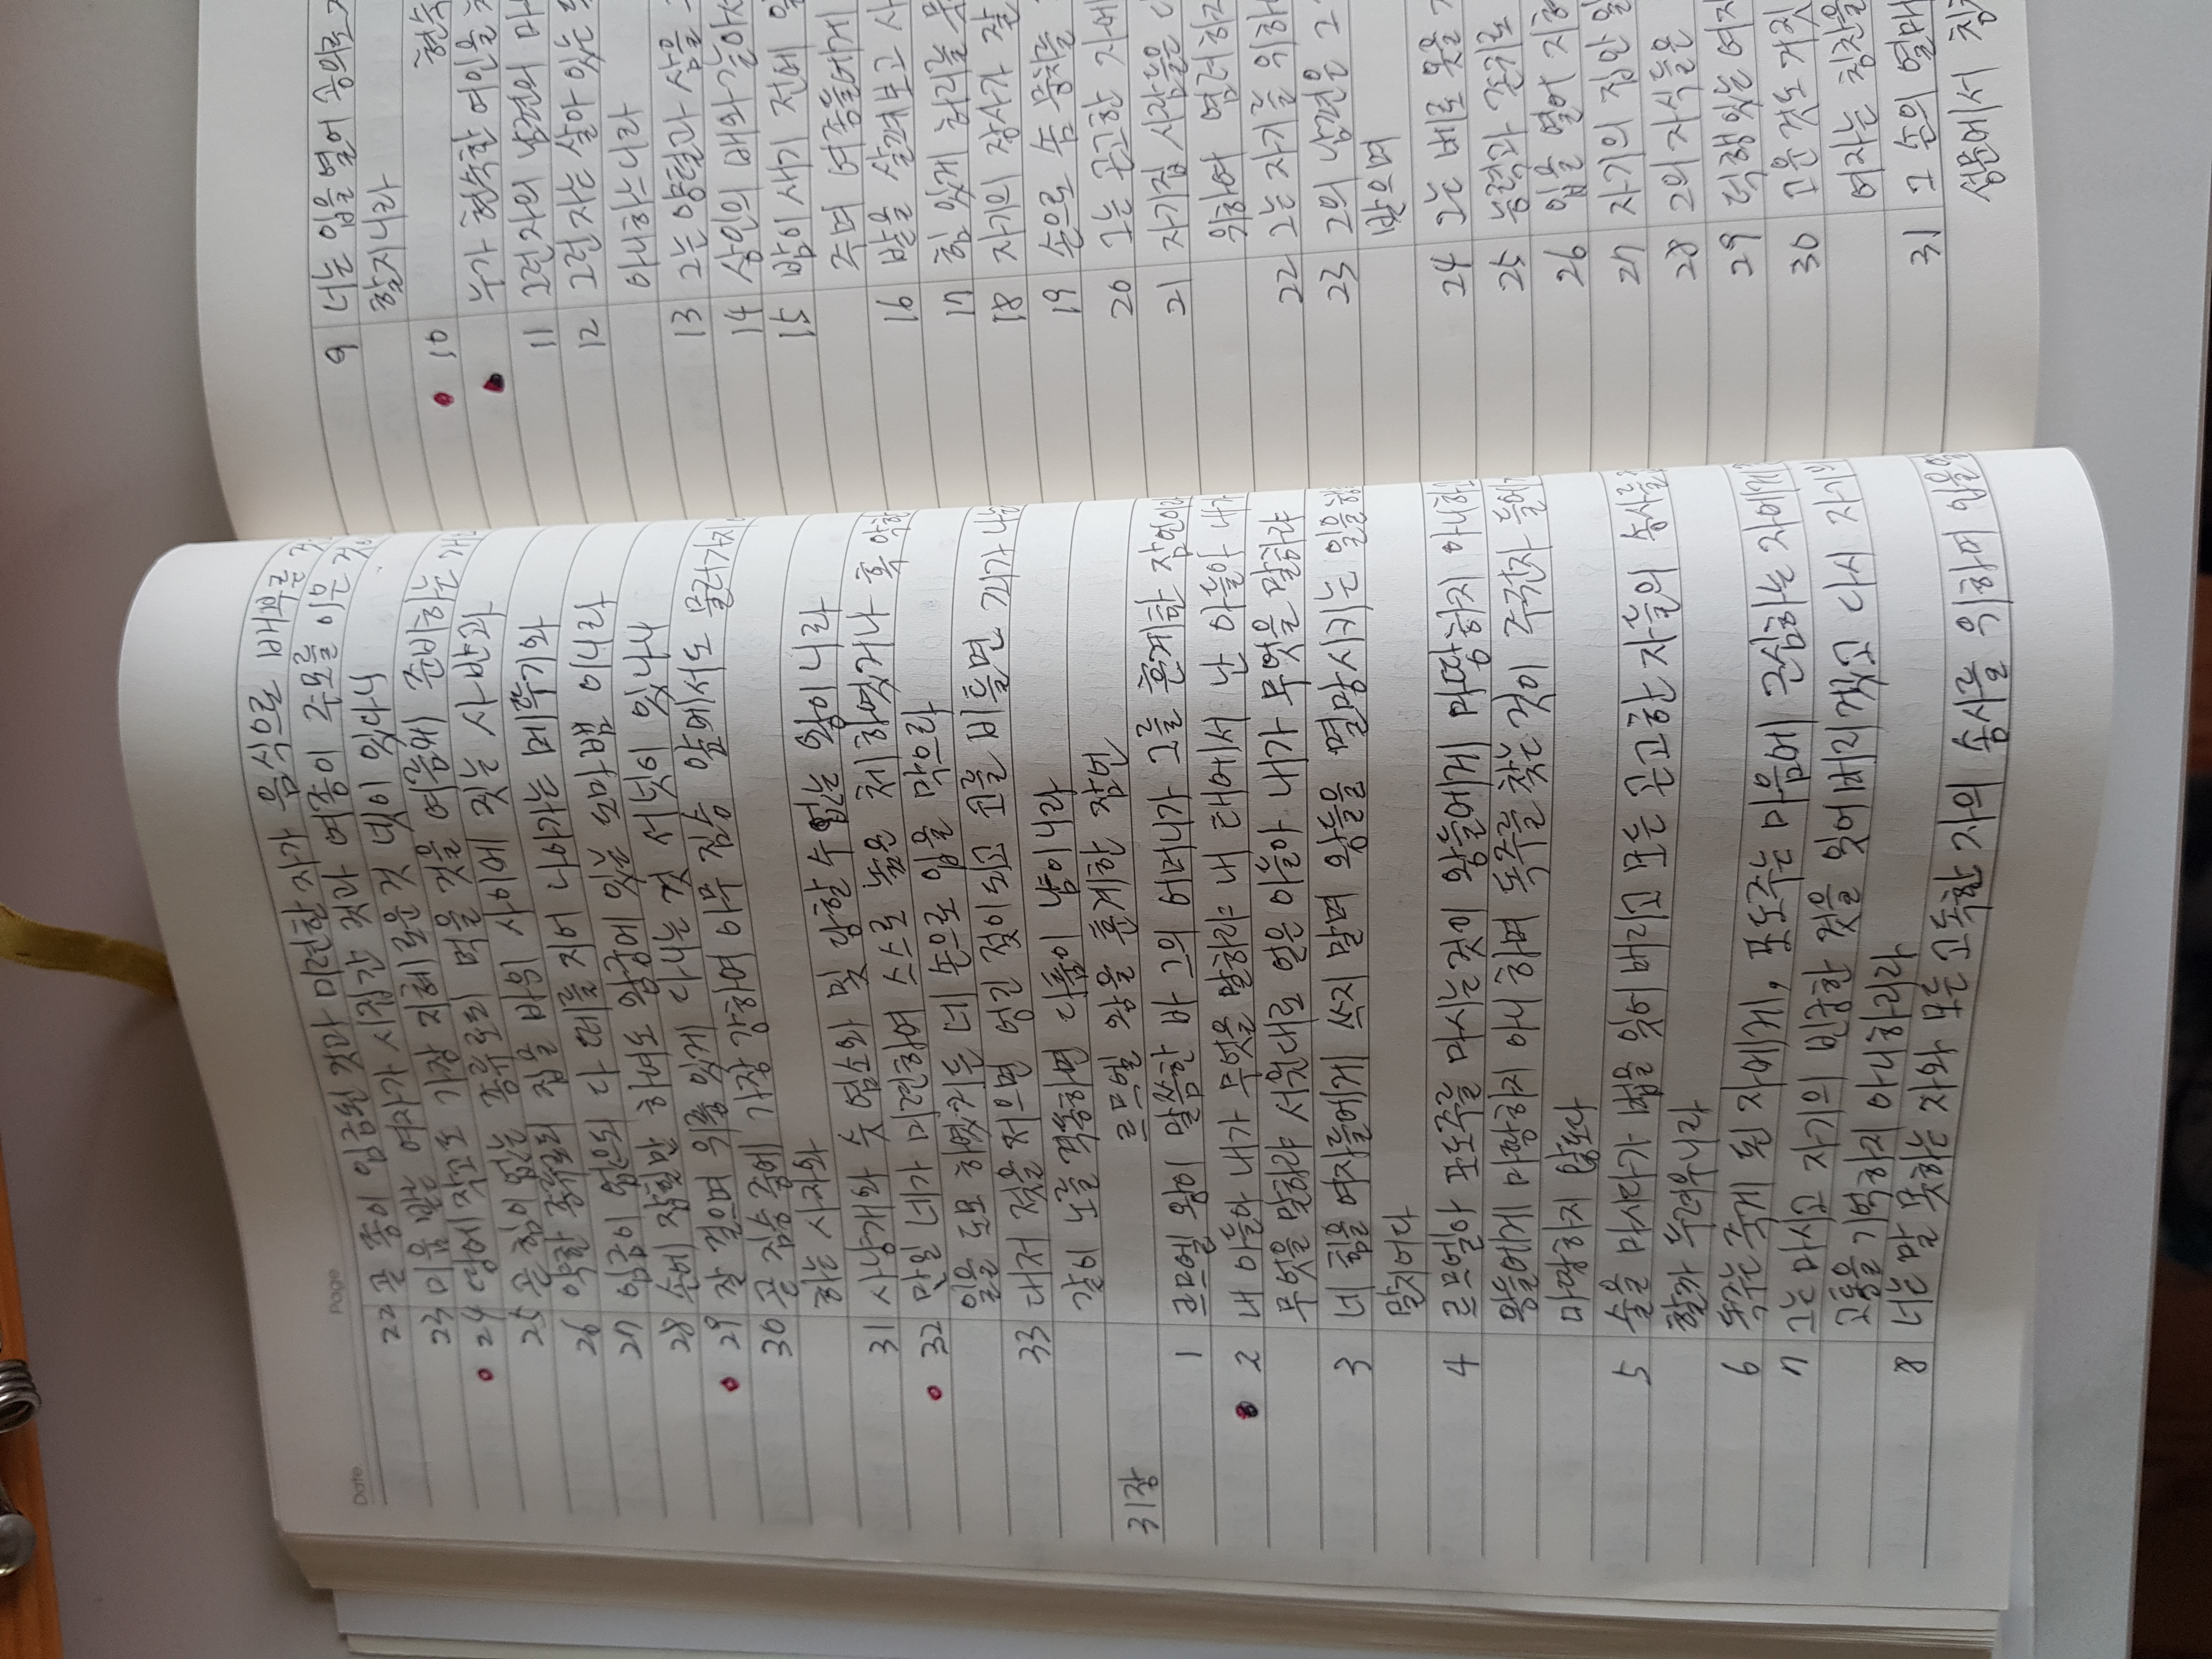 Date
Page
22 곧 종이 임금된 것과 미련한 자가 음식으로 배부른
23 미움 받는 여자가 시집간 것과 여종이 주모를 이은 것이
24 땅에 작고도 가장 지혜로운 것 넷이 있다니
25 곧 힘이 없는 종류로되 먹을 것을 여름에 준비하는 개
26 약한 종류로되 집을 바위 사이에 짓는 사반과
27 임금이 없으되 다 떼를 지어 나아가는 메뚜기와
28 손에 잡힐만 하여도 왕궁에 있는 도마뱀 이니라
29 잘 걸으며 위풍 있게 다니는 것 서넛이 있나니
30 곧 짐승 중에 가장 강하여 아무 짐승 앞에서도 물러가지
하는 사자와
31 사냥개와 숫 염소와 및 당할 수 없는 왕이니라
32 만일 네가 미련하여 스스로 높은 체 하였거나 혹 악한
일을 도모 하였거든 네 손으로 입을 막으라
33 대저 젖을 저으면 엉긴 젖이 되고 코를 비틀면 피가 나는
같이 노를 격동하면 다툼이 남이니라
르므엘 왕을 훈계한 잠언
31장
1 르므엘 왕이 말씀한 바 그의 어머니가 그를 훈계한 잠언이라
2 내 아들아 내가 무엇을 말하랴 내 태에서 난 아들아 내가
무엇을 말하랴 서원대로 얻은 아들아 내가 무엇을 말하랴
3 네 힘을 여자들에게 쓰지 말며 왕들을 멸망시키는 일을 행
말지어다
4 르므엘아 포도주를 마시는것이 왕들에게 마땅하지 아니하고
왕들에게 마땅하지 아니 하며 독주를 찾는 것이 주권자들에게
마땅하지 않도다
5 술을 마시다가 법을 잊어 버리고 모든 곤고한 자들의 송사를
할까 두려우니라
6 독주는 죽게 된 자에게, 포도주는 마음에 근심하는 자에게
7 그는 마시고 자기의 빈궁한 것을 잊어버리겠고 다시 자기의
고통을 기억하지 아니하리라
8 너는 말 못하는 자와 모든 고독한 자의 송사를 위하여 입을열
9 너는 입을 열어 공의로
할지니라
현숙
10 누가 현숙한 여인을
11 그런자의 남편의 마
12 그런 자는 살아 있는
아니하느니라
13 그는 양털과 삼을
14 상인의 배와 같아서
15 밤이 새기 전에 일
주며 여종들에게
16 밭을 살펴보고 사
17 힘 있게 허리를 묶
18 자기의 장사가 잘
19 손으로 솜 뭉치를
20 그는 곤고한 자에
21 자기집 사람들은
위하여 염려하지
22 그는 자기를 위하
23 그의 남편은 그
받으며
24 그는 베로 옷을
25 능력과 존귀로
26 입을 열어 지혜
27 자기의 집안 일
28 그의 자식들은
29 덕행있는 여자
30 고운 것도 거짓
여자는 칭찬을
31 그 손의 열매
성문에서 칭